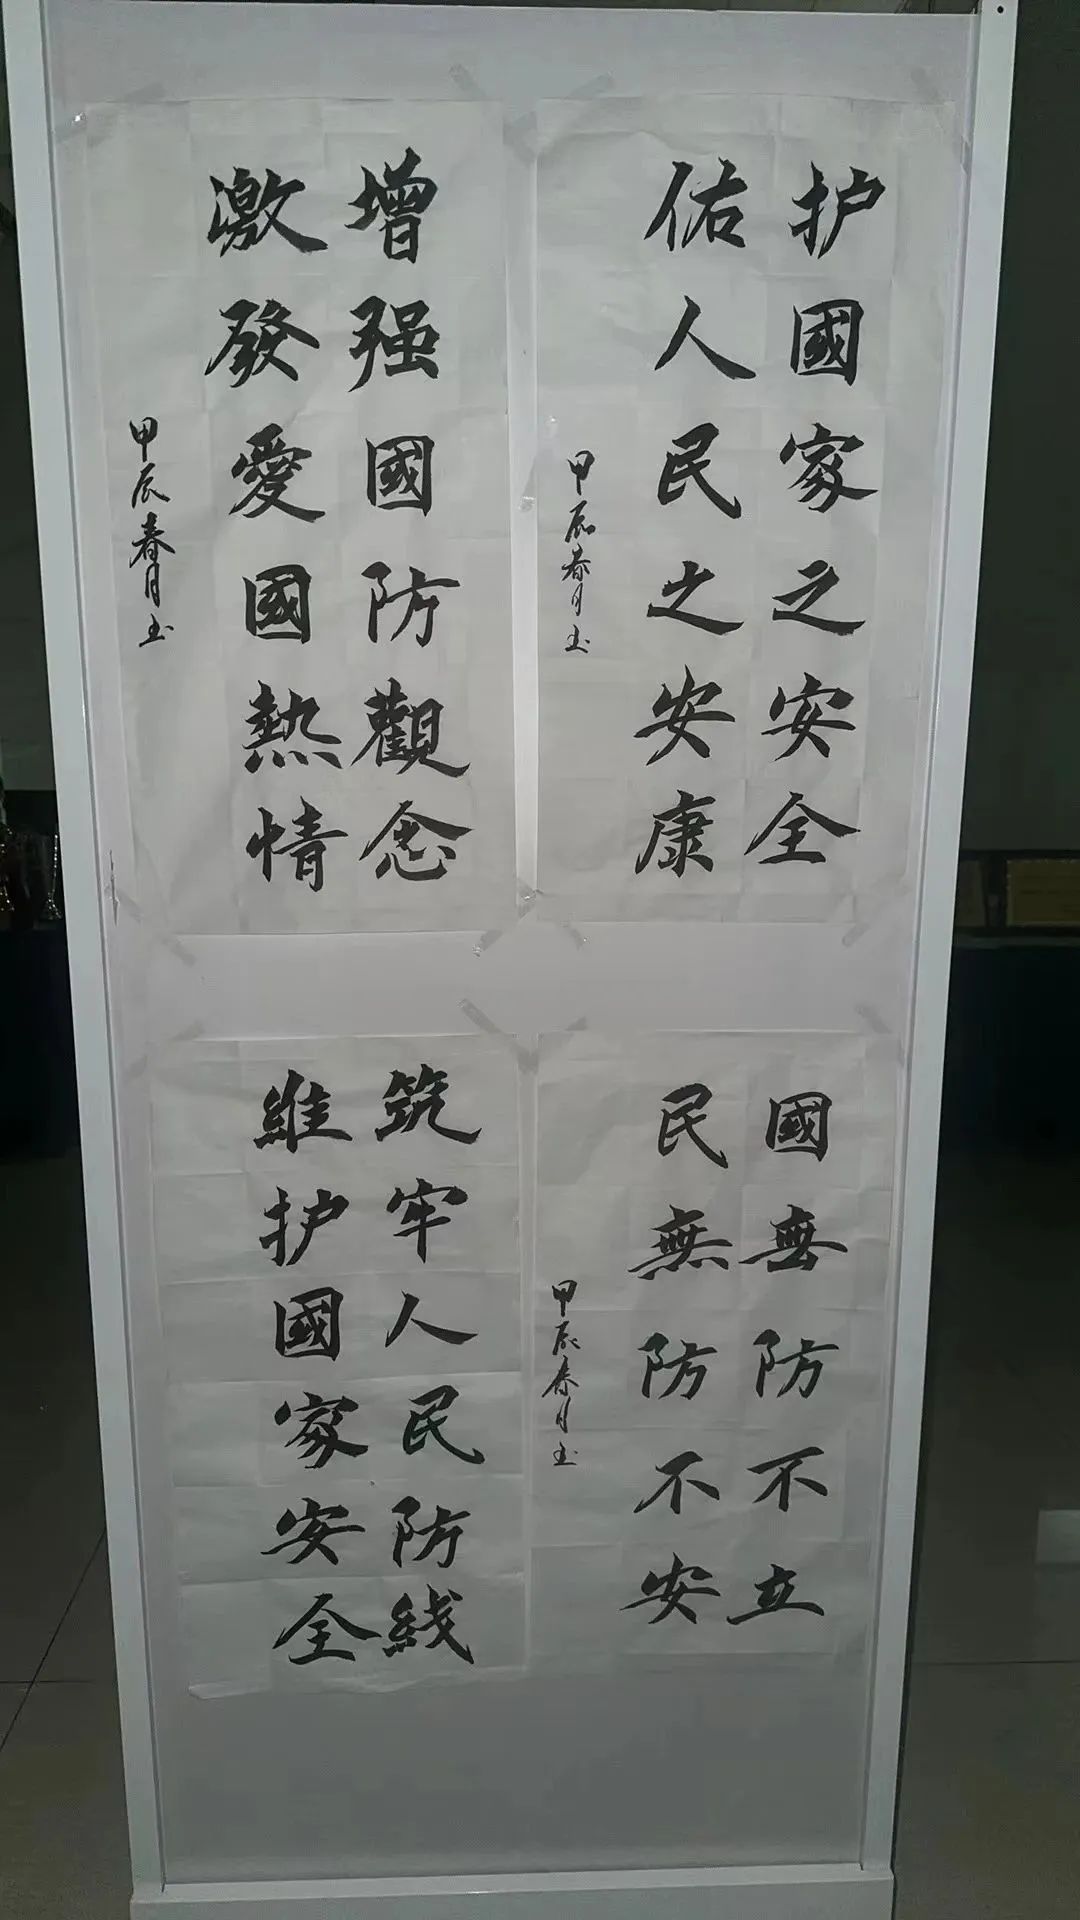 护國家之安全
佑人民之安康
甲辰春月玉
增强國防觀念
激發愛國熱情
甲辰春月玉
國無防不立
民無防不安
甲辰春月玉
筑牢人民防线
維护國家安全